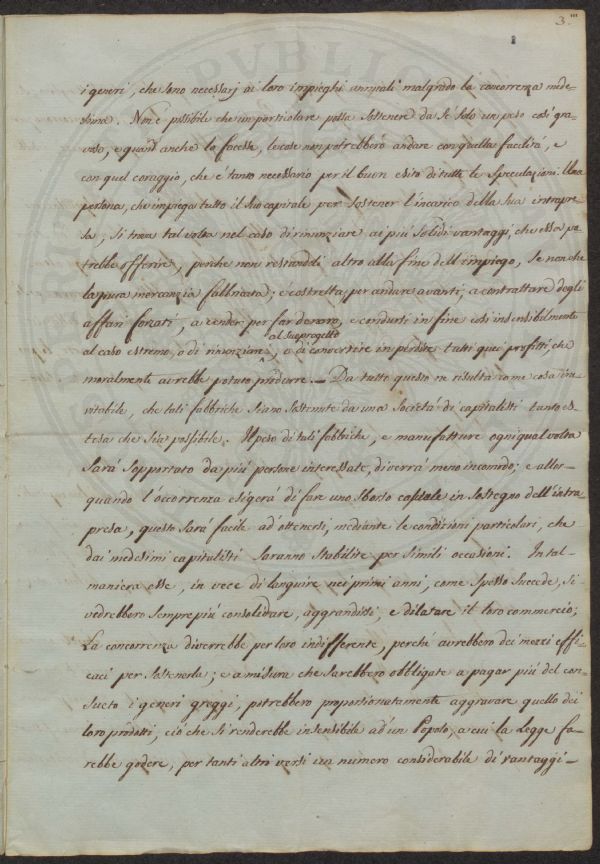 3.
i generi, che sono necessarj ai loro impieghi annuali malgrado la concorrenza mede-
sima. Non è possibile che un particolare possa sostenere da sè solo un peso così gra-
voso, e quand'anche lo facesse, le cose non potrebbero andare con quella facilità, e
con quel coraggio, che è tanto necessario per il buon esito di tutte le speculazioni. Una
persona, che impiega tutto il suo capitale per sostener l'incarico della sua intrapre-
sa, si trova tal volta nel caso di rinunziare ai più solidi vantaggi, che essa po-
trebbe offerire, perche non restandole altro alla fine dell'impiego, se non che
la pura mercanzia fabbricata; è costretta, per andare avanti, a contrattare degli
affari forzati, a vender per far danaro, e condursi in fine così insensibilmente
al suo progetto
al caso estremo, o di rinunziare, o di convertire in perdite tutti quei profitti, che
moralmente avrebbe potuto produrre. — Da tutto questo ne risulta come cosa ine-
vitabile, che tali fabbriche siano sostenute da una Società di capitalisti tanto es-
tesa che sia possibile. Il peso di tali fabbriche, e manufatture ogni qual volta
sarà sopportato da più persone interessate, diverrà meno incomodo; e allor-
quando l'occorrenza esigerà di fare uno sborso casuale in sostegno dell'intra-
presa, questo sarà facile ad ottenersi, mediante le condizioni particolari, che
dai medesimi capitalisti saranno stabilite per simili occasioni. In tal-
maniera esse, in vece di languire nei primi anni, come spesso succede, si
vedrebbero sempre più consolidare, aggrandirsi, e dilatare il loro commercio;
La concorrenza diverrebbe per loro indifferente, perché avrebbero dei mezzi effi-
caci per sostenerla; e a misura che sarebbero obbligate a pagar più del con-
sueto i generi greggi, potrebbero proporzionatamente aggravare quello dei
loro prodotti, ciò che si renderebbe insensibile ad un Popolo, a cui la Legge fa-
rebbe godere, per tanti altri versi un numero considerabile di vantaggi —